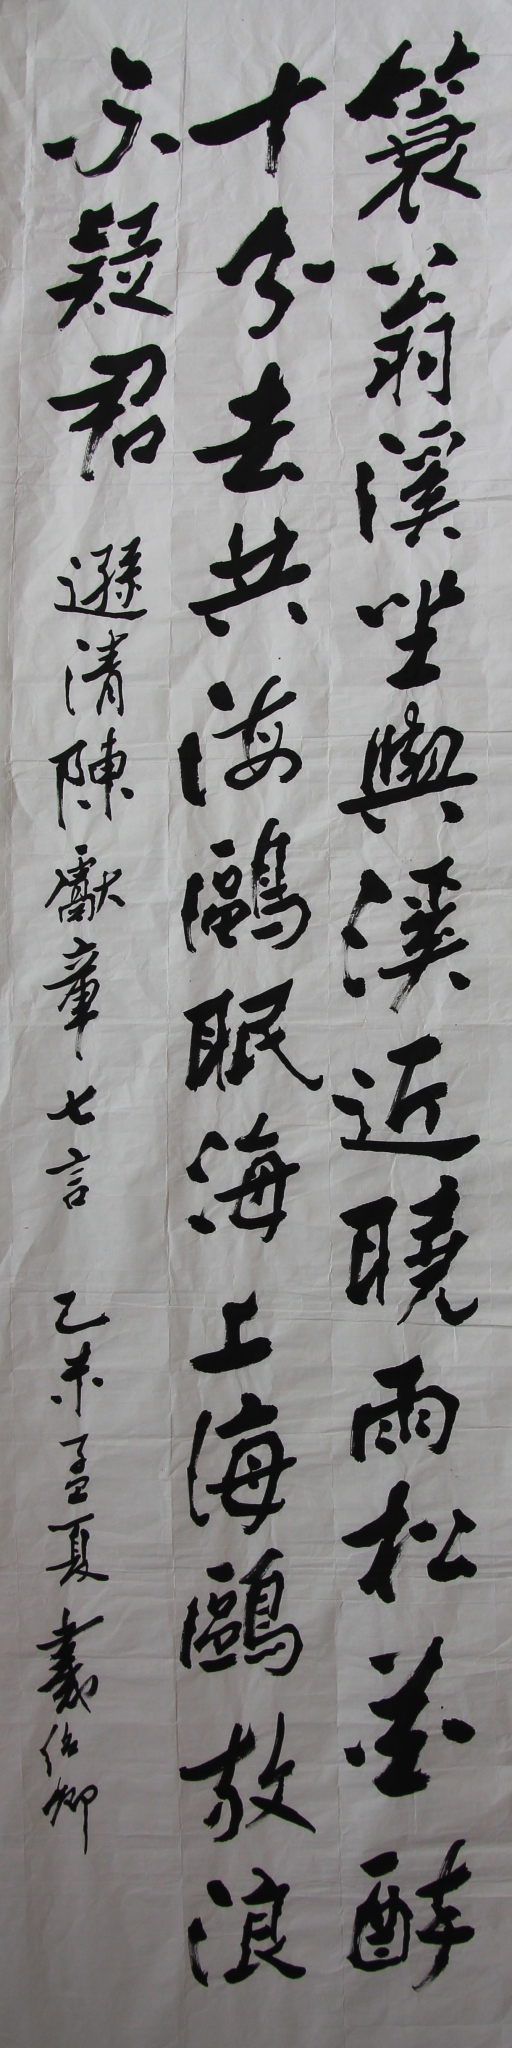 簑翁溪坐與溪近曉雨松花醉
十分去共海鷗眠海上海鷗放浪
不疑君 遜清陳獻章七言 乙未孟夏